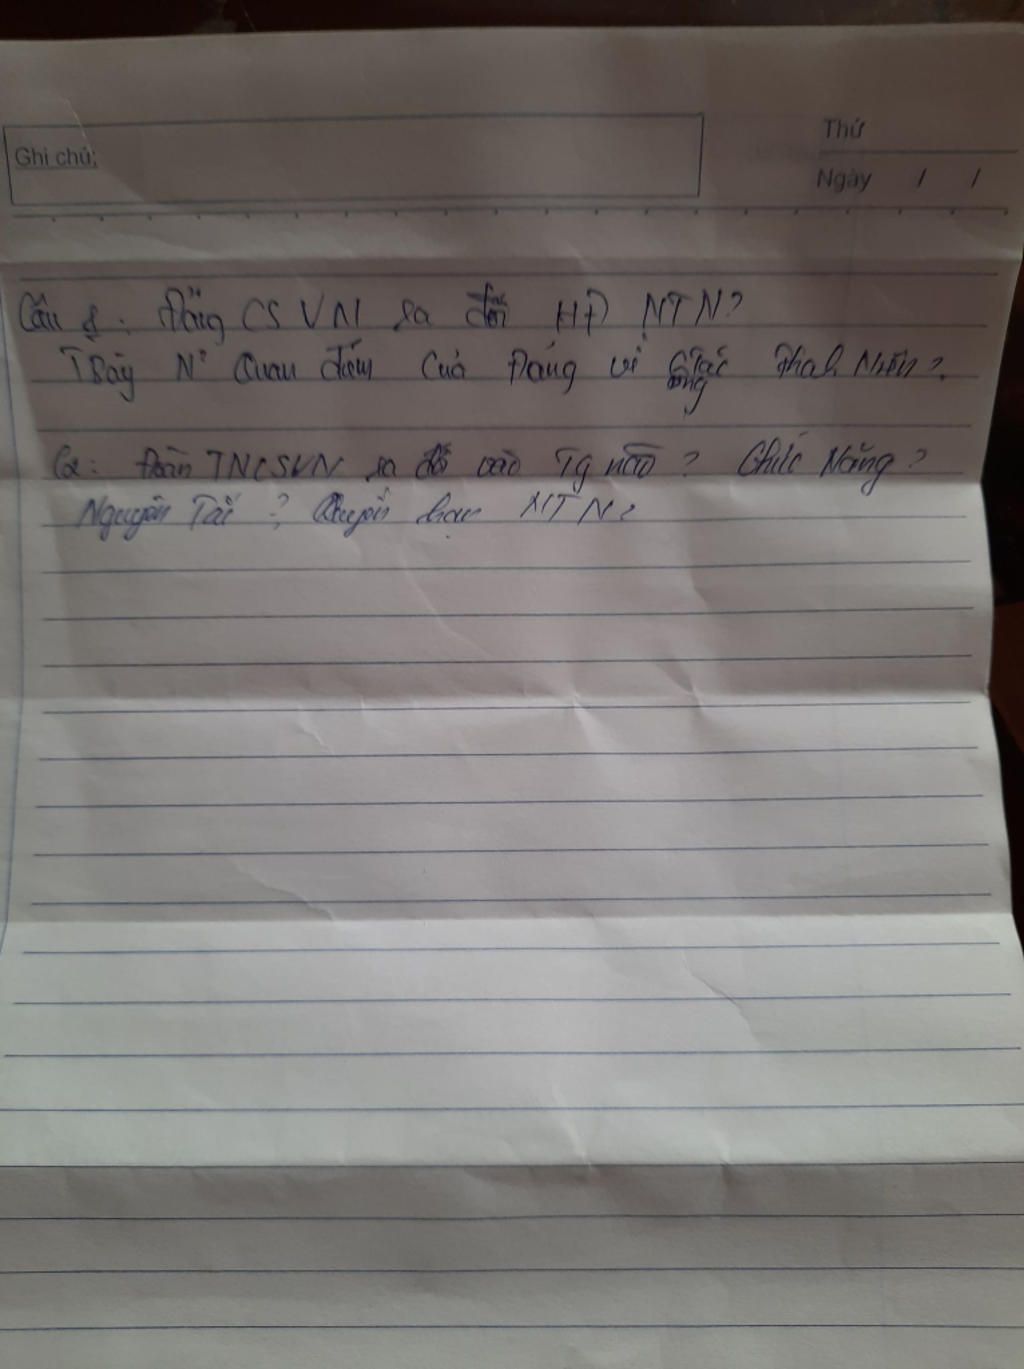 Ghi chú:
Thứ
Ngày / /
Câu 1: Đảng CSVN ra đời HĐ NTN?
TBày N² Quan điểm Của Đảng về Công Tác Thanh Niên?
C2: Đoàn TNCSVN ra đời vào Tg nào? Chức Năng?
Nguyên Tắc? Quyền hạn NTN?